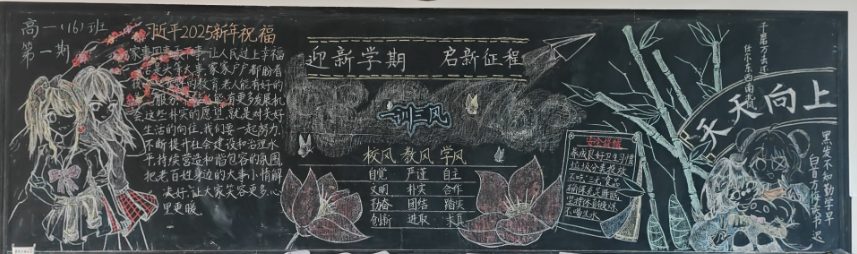 高一(16)班
第一期
习近平2025新年祝福
家事国事天下事,让人民过上幸福
生活是头等大事,家家户户都盼着
孩子能有好的教育,老人能有好的
服务,年轻人能有更多发展机
会,这些朴实的愿望,就是对美好
生活的向往,我们要一起努力,
不断提升社会建设和治理水
平,持续营造和谐包容的氛围,
把老百姓身边的大事小情解
决好,让大家笑容更多、心
里更暖。
迎新学期 启新征程
一训三风
校风 教风 学风
自觉 严谨 自主
文明 朴实 合作
勤奋 团结 踏实
创新 进取 求真
养成良好卫生习惯
不喝生水
千磨万击还
任尔东西南北风
天天向上
黑发不知勤学早
白首方悔读书迟